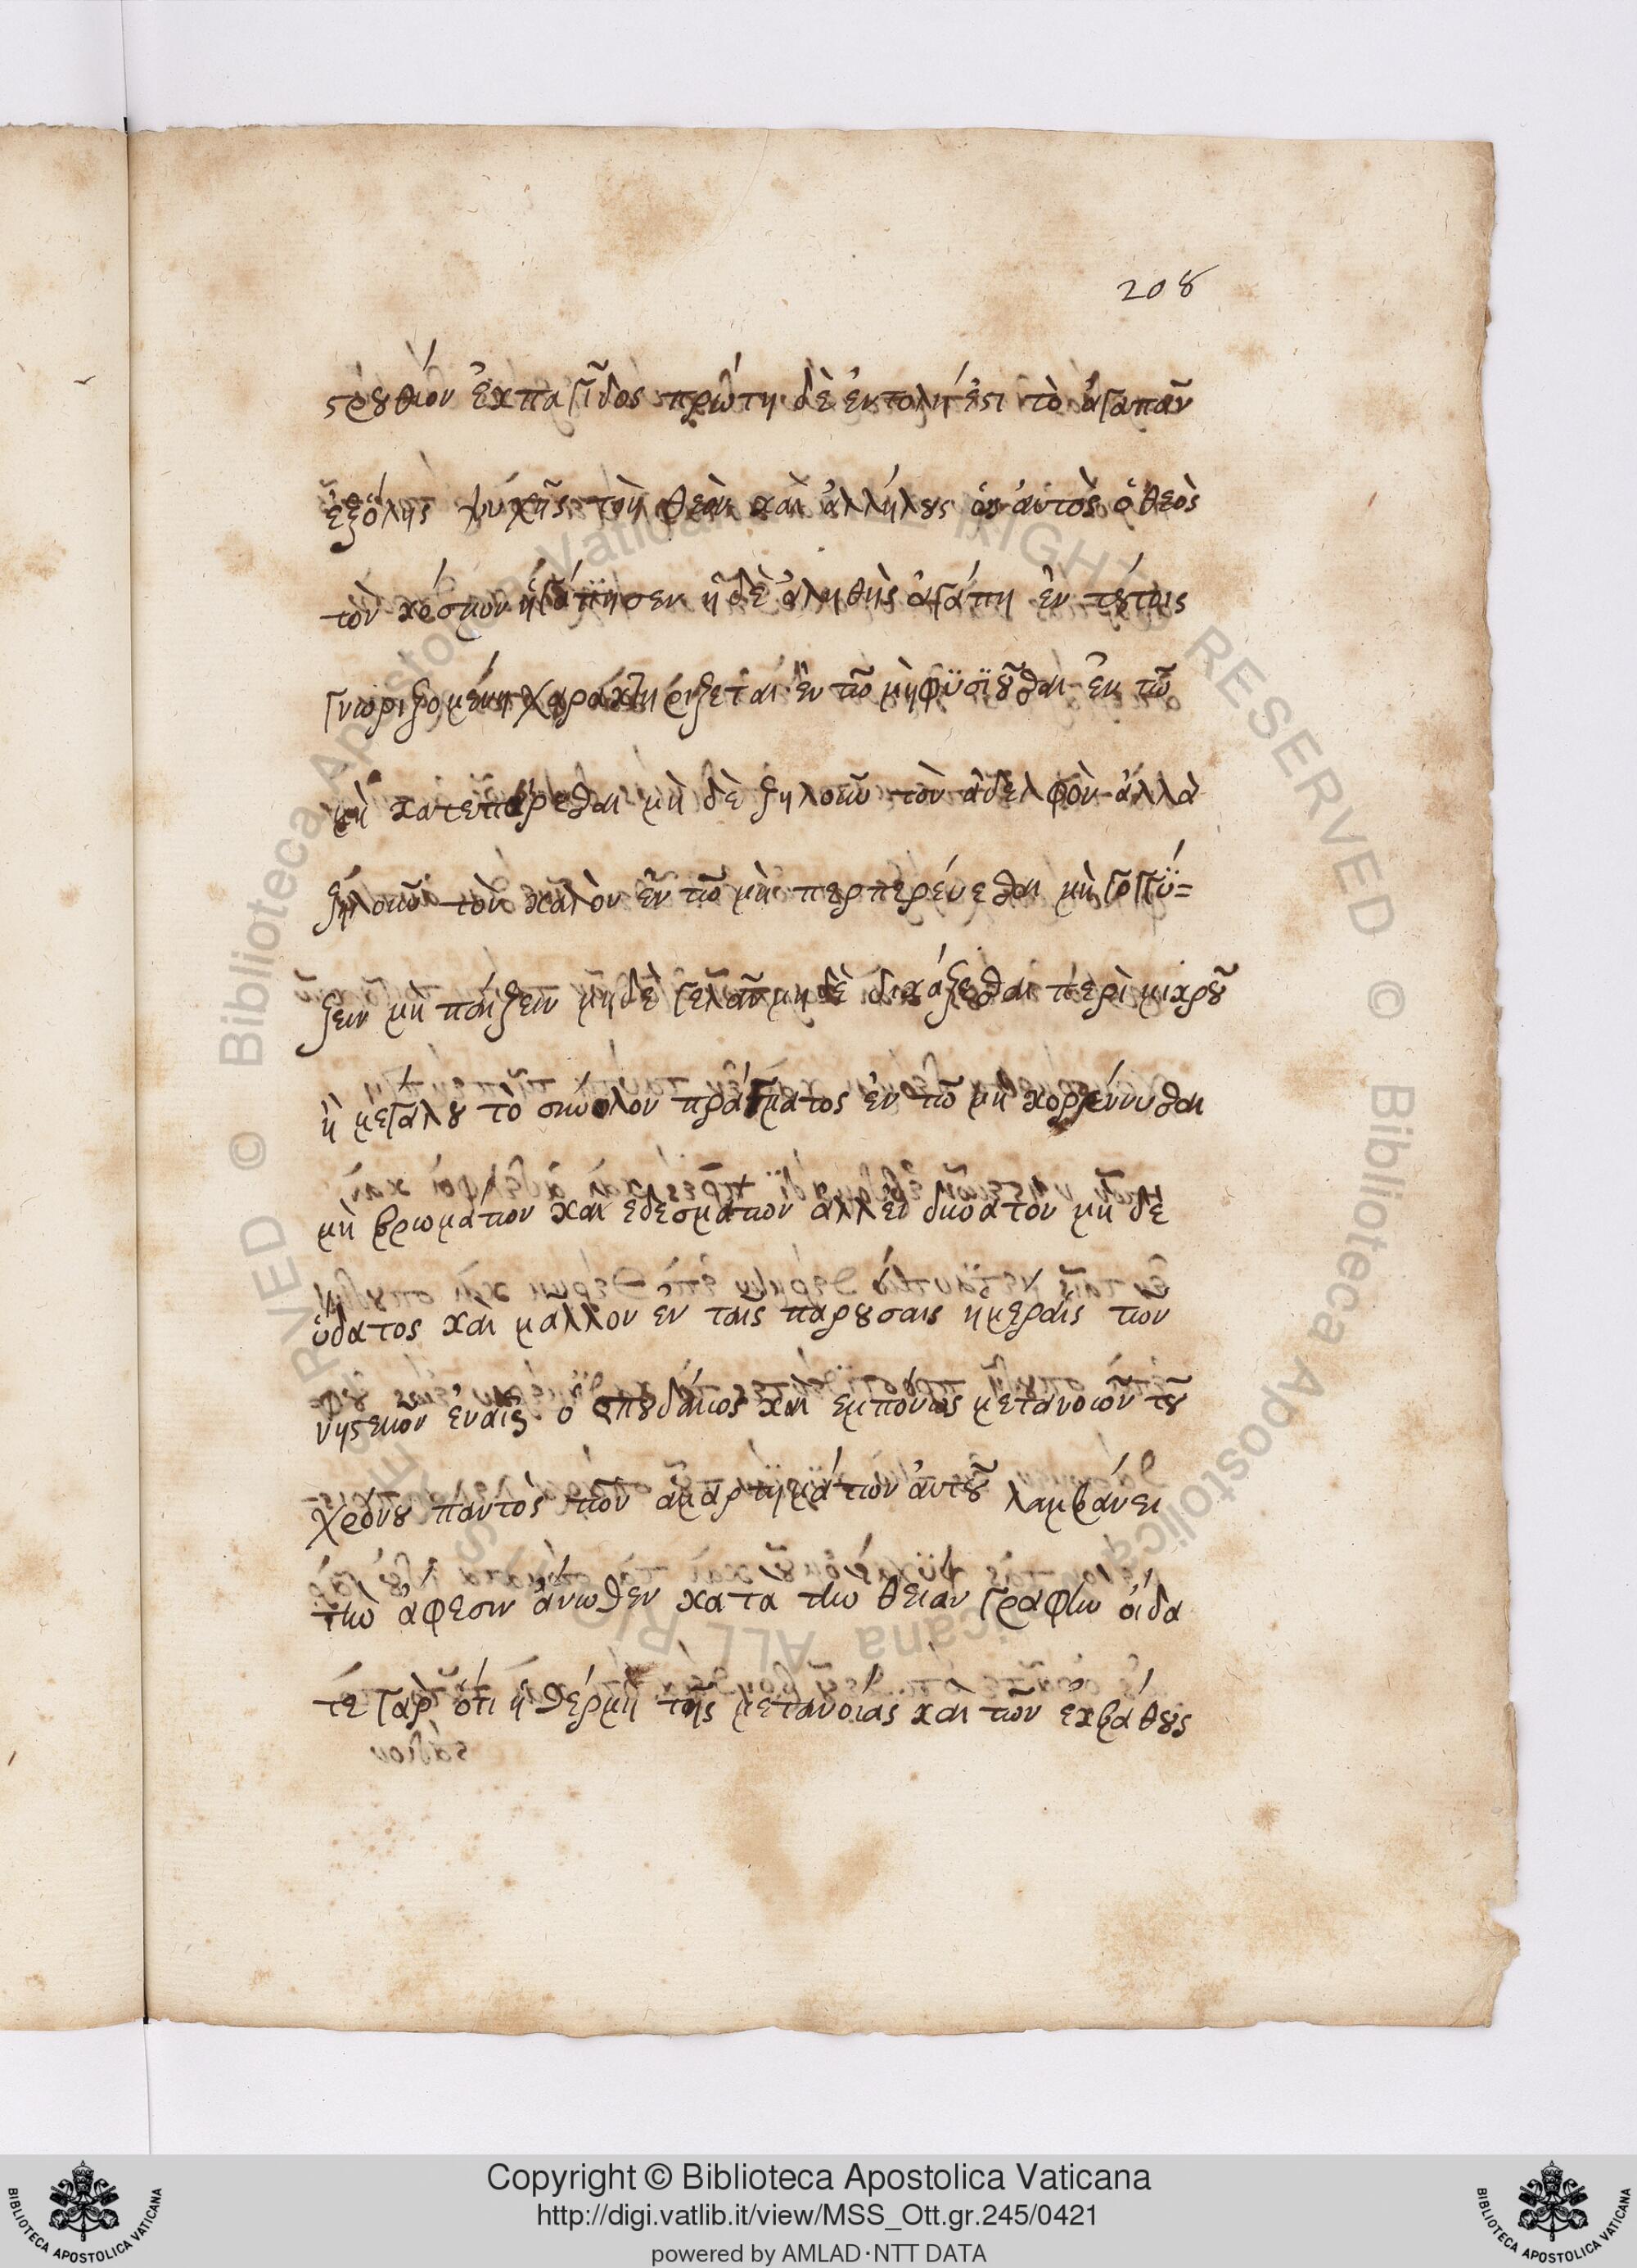 208
στρουθίον ἐκπαγίδος πρώτη δὲ ἐντολή ἐστι τὸ ἀγαπᾶν
ἐξόλης ψυχῆς τὸν θεὸν καὶ ἀλλήλους ὡς αὐτὸς ὁ θεὸς
τὸν κόσμον ἠγάπησεν ἡ δὲ ἀληθὴς ἀγάπη ἐν τούτοις
γνωριζομένη χαρακτηρίζεται ἐν τῶ μὴ φϋσϊοῦσθαι ἐν τῶ
μὴ κατεπαίρεσθαι μὴ δὲ ζηλοῦν τὸν ἀδελφὸν ἀλλὰ
ζηλοῦν τὸν καλὸν ἐν τῶ μὴ περπερεύεσθαι μὴ γογγϋ=
ζειν μὴ παίζειν μηδὲ γελᾶν μηδὲ δικάζεσθαι περὶ μικροῦ
ἢ μεγάλου τὸ πράγματος ἐν τῶ μὴ κορέννυσθαι
μὴ βρωμάτων καὶ ἐδεσμάτων ἀλλ μὴ δὲ
ὕδατος καὶ μᾶλλον ἐν ταῖς παρούσαις ἡμέραις τῶν
νηστειῶν ὁ σπουδαίως καὶ ἐμπόνως μετανοιῶν τοῦ
χρόνου παντὸς τῶν ἁμαρτημάτων ἀυτοῦ λαμβάνει
τὴν ἄφεσιν ἄνωθεν κατα τὴν θείαν γραφὴν οἴδα
τε γὰρ ὅτι ἡ θέρμη τῆς μετανοίας καὶ τῶν ἐκβάθους
Copyright © Biblioteca Apostolica Vaticana
http://digi.vatlib.it/view/MSS_Ott.gr.245/0421
powered by AMLAD·NTT DATA